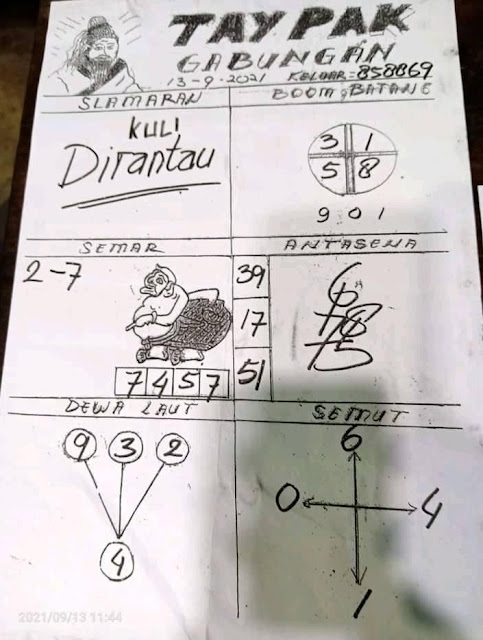 TAYPAK
GABUNGAN
13-9-2021 KELUAR=858869
SLAMARAN
BOOM BATANG
KULI
Dirantau
3 1
5 8
9 0 1
SEMAR
ANTASENA
2-7
39
17
51
7 4 5 7
DEWA LAUT
SEMUT
9 3 2
4
6
0 4
1
2021/09/13 11:44